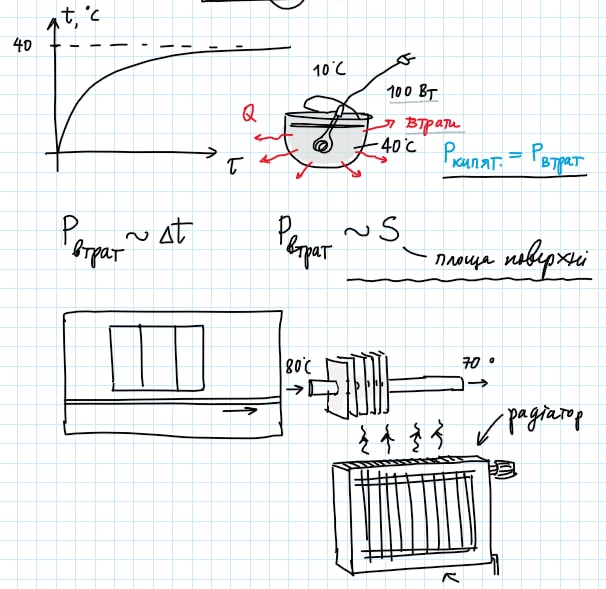 t, °C
40
τ
10°C
100 Вт
Q
втрати
40°C
Pкипят. = Pвтрат
Pвтрат ~ Δt
Pвтрат ~ S
площа поверхні
80°C
70 °
радіатор